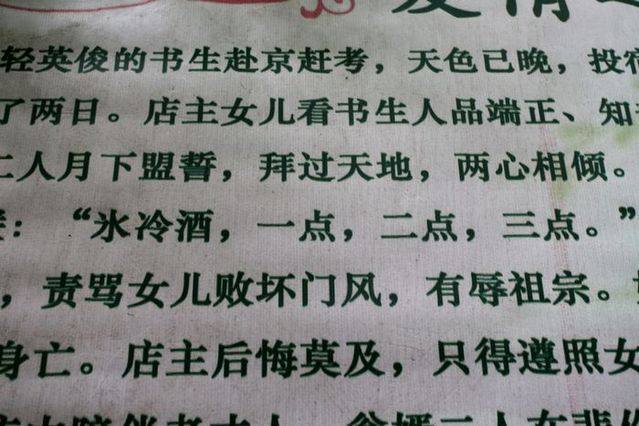 爱情
轻英俊的书生赴京赶考，天色已晚，投宿
了两日。店主女儿看书生人品端正、知
二人月下盟誓，拜过天地，两心相倾。
：“氷冷酒，一点，二点，三点。”
，责骂女儿败坏门风，有辱祖宗。
身亡。店主后悔莫及，只得遵照女
陪伴老夫人